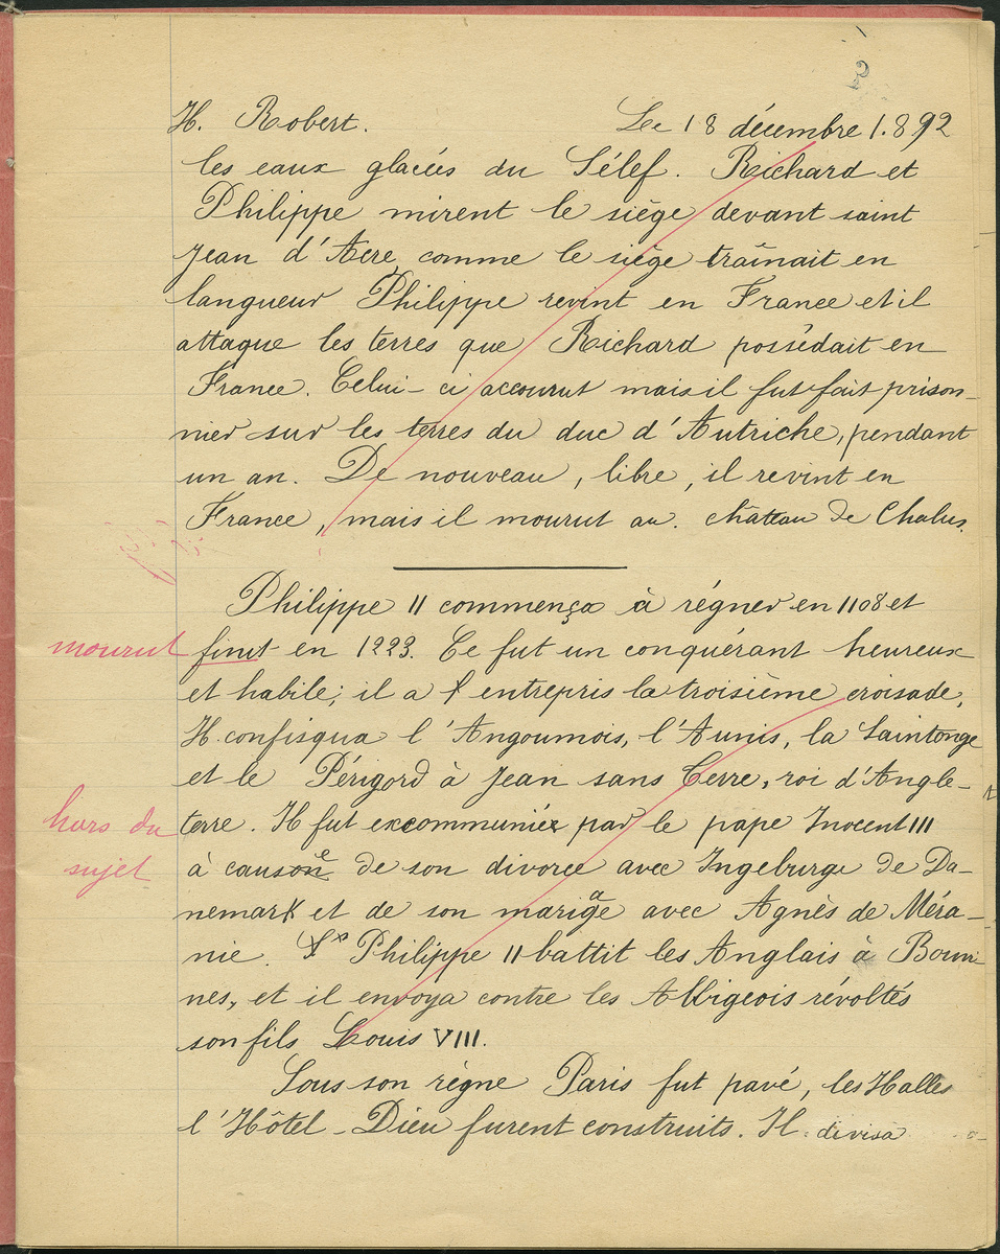 2
H. Robert. Le 18 décembre 1.892
les eaux glacées du Sélef. Richard et
Philippe mirent le siège devant saint
Jean d'Acre, comme le siège traînait en
langueur Philippe revint en France et il
attaque les terres que Richard possédait en
France. Celui-ci accourut mais il fut fait prison-
nier sur les terres du duc d'Autriche, pendant
un an. De nouveau, libre, il revint en
France, mais il mourut au. château de Chalus.
Philippe II commença à régner en 1108 et
mourut finit en 1223. Ce fut un conquérant heureux
et habile; il a entrepris la troisième croisade,
Il confisqua l'Angoumois, l'Aunis, la Saintonge
et le Périgord à Jean sans Cerre, roi d'Angle-
hors du terre. Il fut excommuniéx par le pape Inocent III
sujet à cause de son divorce avec Ingeburge de Da-
nemark et de son mariage avec Agnès de Méra-
nie. Philippe II battit les Anglais à Bouvi-
nes, et il envoya contre les Albigeois révoltés
son fils Louis VIII.
Sous son règne Paris fut pavé, les Halles
l'Hôtel-Dieu furent construits. Il divisa